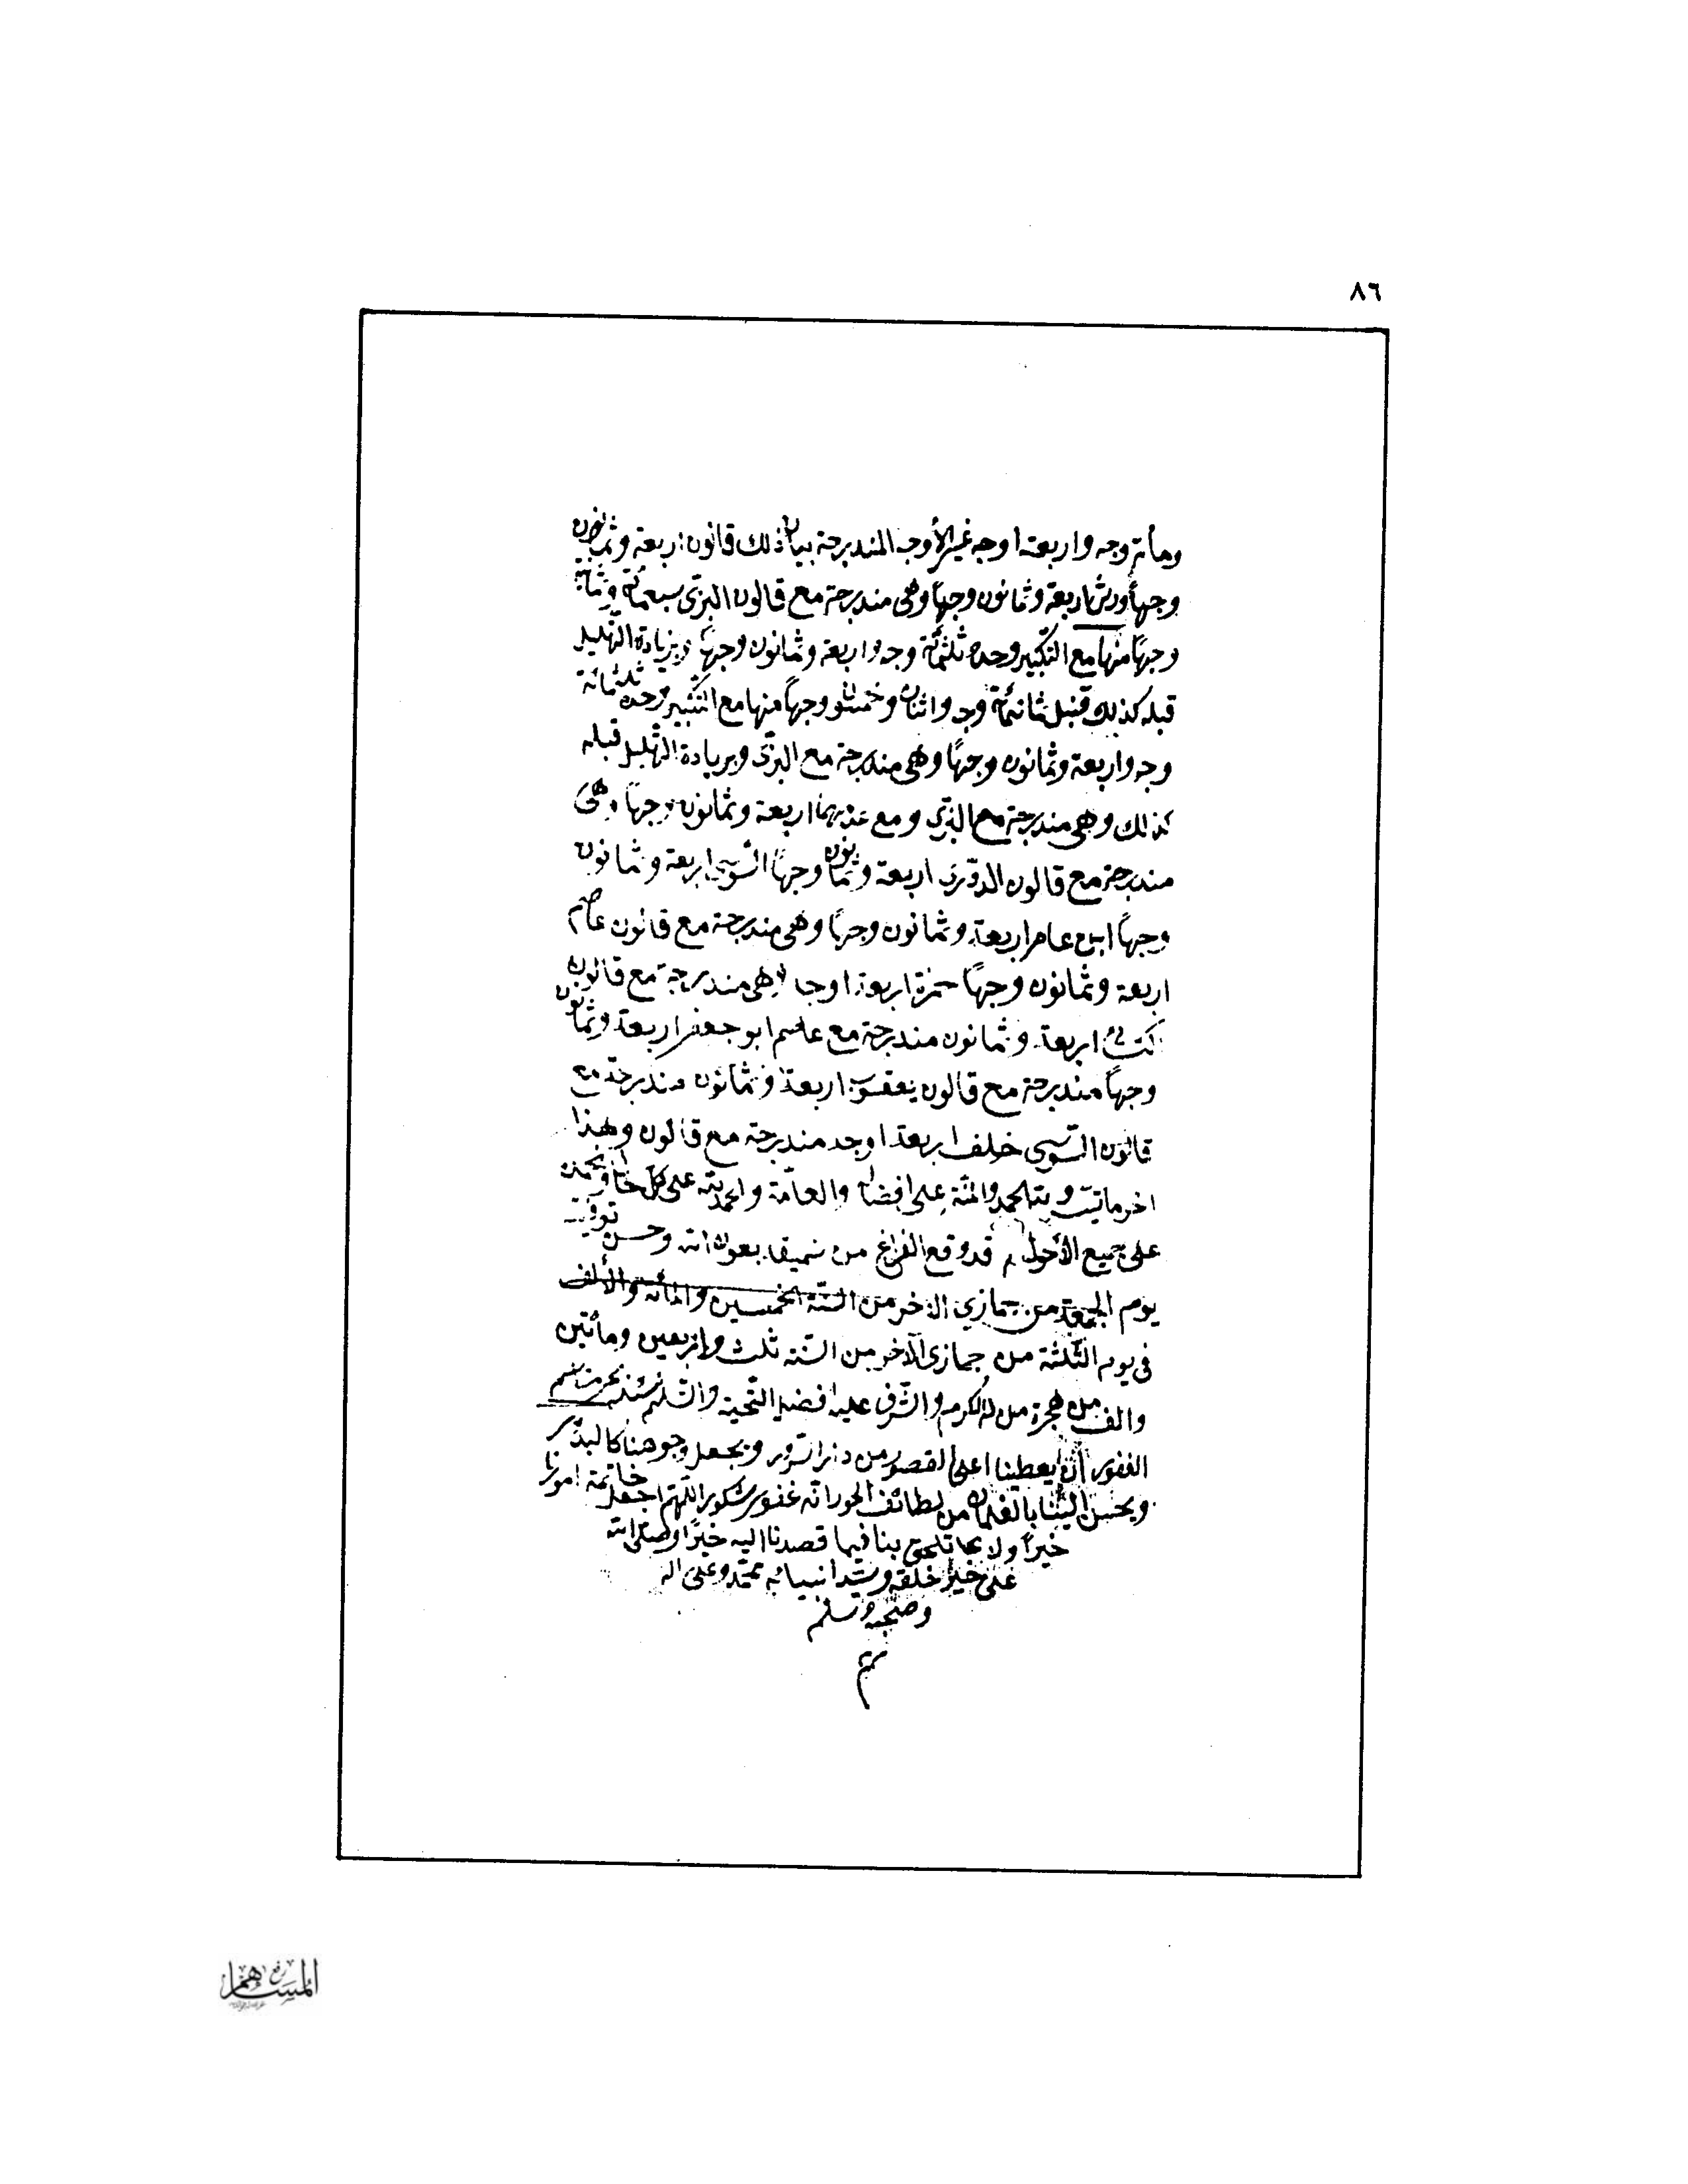 ٨٦
ومأة وجه واربعة اوجه غير الأوجه المندرجة بيان ذلك قانون اربعة وثمانون
وجهاً ورش اربعة وثمانون وجهاً وهى مندرجة مع قالون البزى سبعمأة وثمانية
وجهاً منها مع التكبير وحده ثلثمأة وجه واربعة وثمانون وجهاً وبزيادة التهليل
قبله كذلك قنبل ثمانمأة وجه واثنان وخمسون وجهاً منها مع التكبير وحده ثلثمائة
وجه واربعة وثمانون وجهاً وهى مندرجة مع البزى وبزيادة التهليل قبله
كذلك وهى مندرجة مع البزى ومع عدمهما اربعة وثمانون وجهاً وهى
مندرجة مع قالون الدورى اربعة وثمانون وجهاً السوسى اربعة وثمانون
وجهاً ابن عامر اربعة وثمانون وجهاً وهى مندرجة مع قانون عاصم
اربعة وثمانون وجهاً حمزة اربعة اوجه وهى مندرجة مع قالون
اربعة وثمانون مندرجة مع عاصم ابو جعفر اربعة وثمانون
وجهاً مندرجة مع قالون يعقوب اربعة وثمانون مندرجة مع
قانون السوسى خلف اربعة اوجه مندرجة مع قالون وهذا
اخر ما تيسر ولله الحمد والمنة على والعامة والحمد لله على كل حال ونحمده
على جميع الأحوال قد وقع الفراغ من تنميقه بعون الله وحسن توفيقه
يوم الجمعة من جمازي الاخر من السنة الخمسين والمائة والألف
فى يوم الثلثة من جمازى الآخر من السنة ثلث واربعين ومأتين
والف من هجرة من له الكرم والشرف عليه افضل التحية والتسليم
الغفور أن يعطينا اعلى القصور من دار السرور ويجعل وجوهنا كالبدور
ويحسن الينا بالغلمان من لطائف الحور انه غفور شكور اللهم اجعل خاتمة امورنا
خيراً ولا بنا فيما قصدنا اليه خيراً وصلى الله
على خير خلقه وسيد انبيائه محمد وعلى اله
وصحبه وسلم
تم